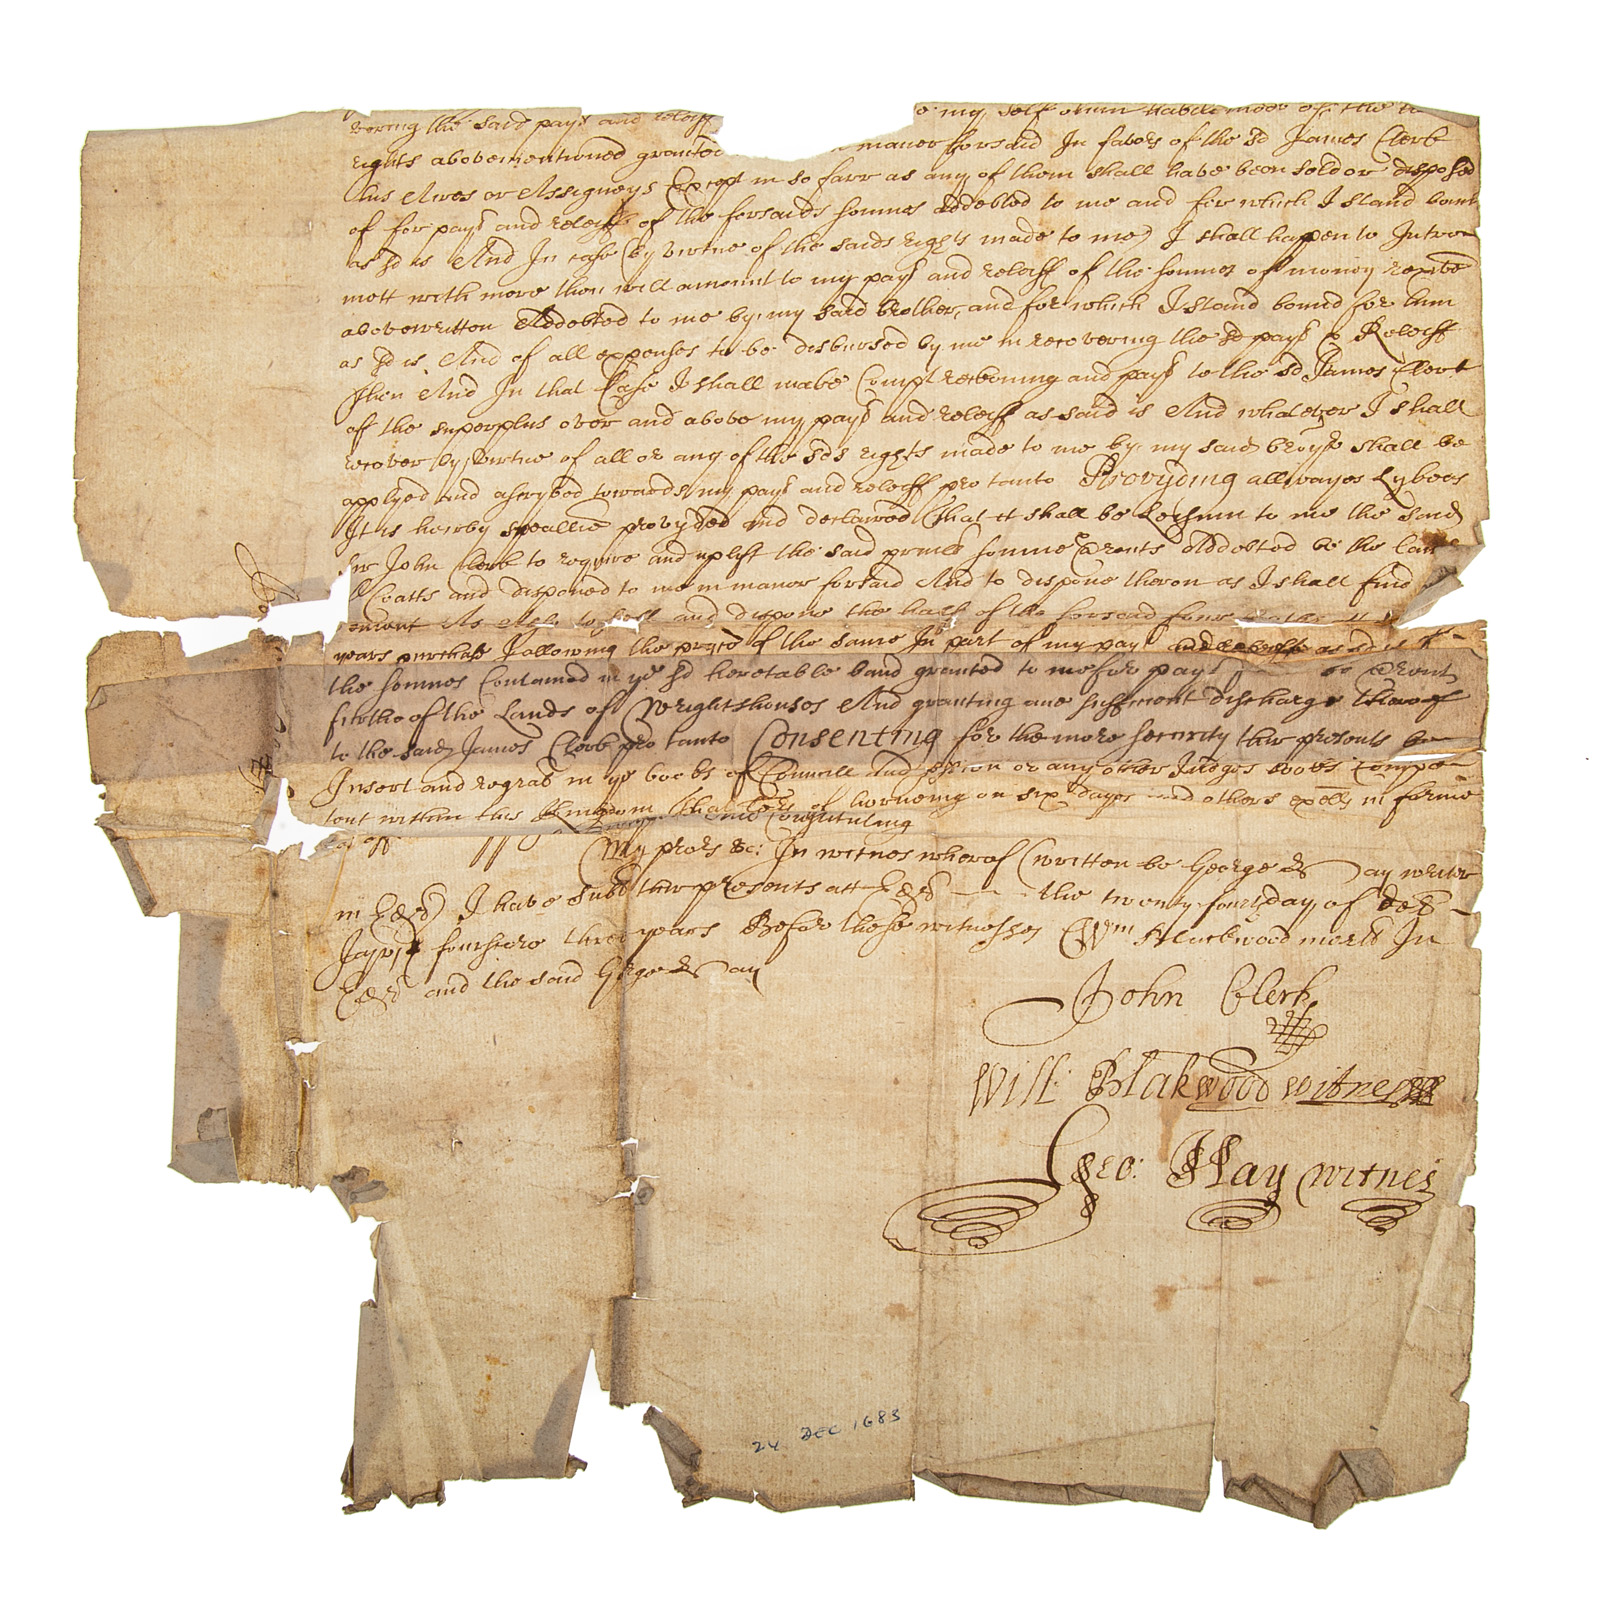 vering the said payt and releiff my self
rights abovementioned granted maner forsaid In favors of the sd James Clerk
his Aires or Assigneys Except in so farr as any of them shall have been sold or disposed
of for payt and releiff of the forsaids soumes addebted to me and for which I stand bound
as sd is And In case (by virtue of the saids rights made to me) I shall happen to Intro=
mett with more then will amount to my payt and releiff of the soumes of money
abovewritten Addebted to me by my said brother, and for which I stand bound for him
as sd is, And of all expenses to be disbursed by me in recovering the sd payt & Releiff
Then And In that Case I shall make Compt reckoning and payt to the sd James Clerk
of the superplus over and above my payt and releiff as said is And whatever I shall
recover by virtue of all or any of the sds rights made to me by my said broyr shall be
applyed and ascrybed towards my payt and releiff pro tanto Provyding allwayes Lykeas
It is hereby speallie provyded and declaired That it shall be Leisum to me the said
Sir John Clerk to require and uplift the said soume & rents Addebted be the
Coatts and disponed to me in maner forsaid And to dispone theron as I shall find
and dispone the half of the forsaid
years purchase Allowing the pryce of the same In part of my payt and releiff as sd is of
the soumes Contained in ye sd heretable band granted to me for payt
furth of the Lands of Wrightshouses And granting ane sufficient discharge therof
to the said James Clerk pro tanto Consenting for the more security thir presents be
Insert and regrad in ye books of Councill And Session or any other Judges books Compe=
tent within this Kingdom That Lers of horneing on six dayes and others in forme
Constituting
My prors &c: In witnes wherof (written be George Hay writer
in Edr) I have subt thir presents att Edr the twenty fourt day of decr
Jajvjc fourscore three years Befor these witnesses Wm Blackwood mert In
Edr and the said George Hay
John Clerk
Will: Blakwood witness
Geo: Hay witnes
24 DEC 1683